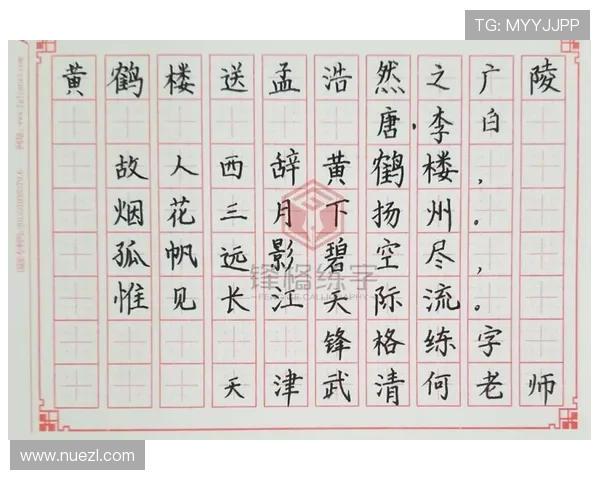 TG: MYYJJPP
黄鹤楼送孟浩然之广陵
唐·李白
故人西辞黄鹤楼，
烟花三月下扬州。
孤帆远影碧空尽，
惟见长江天际流。
锋格练字
天津武清何老师
锋格练字
FENGGE CALLIGRAPHY
www.nuezl.com